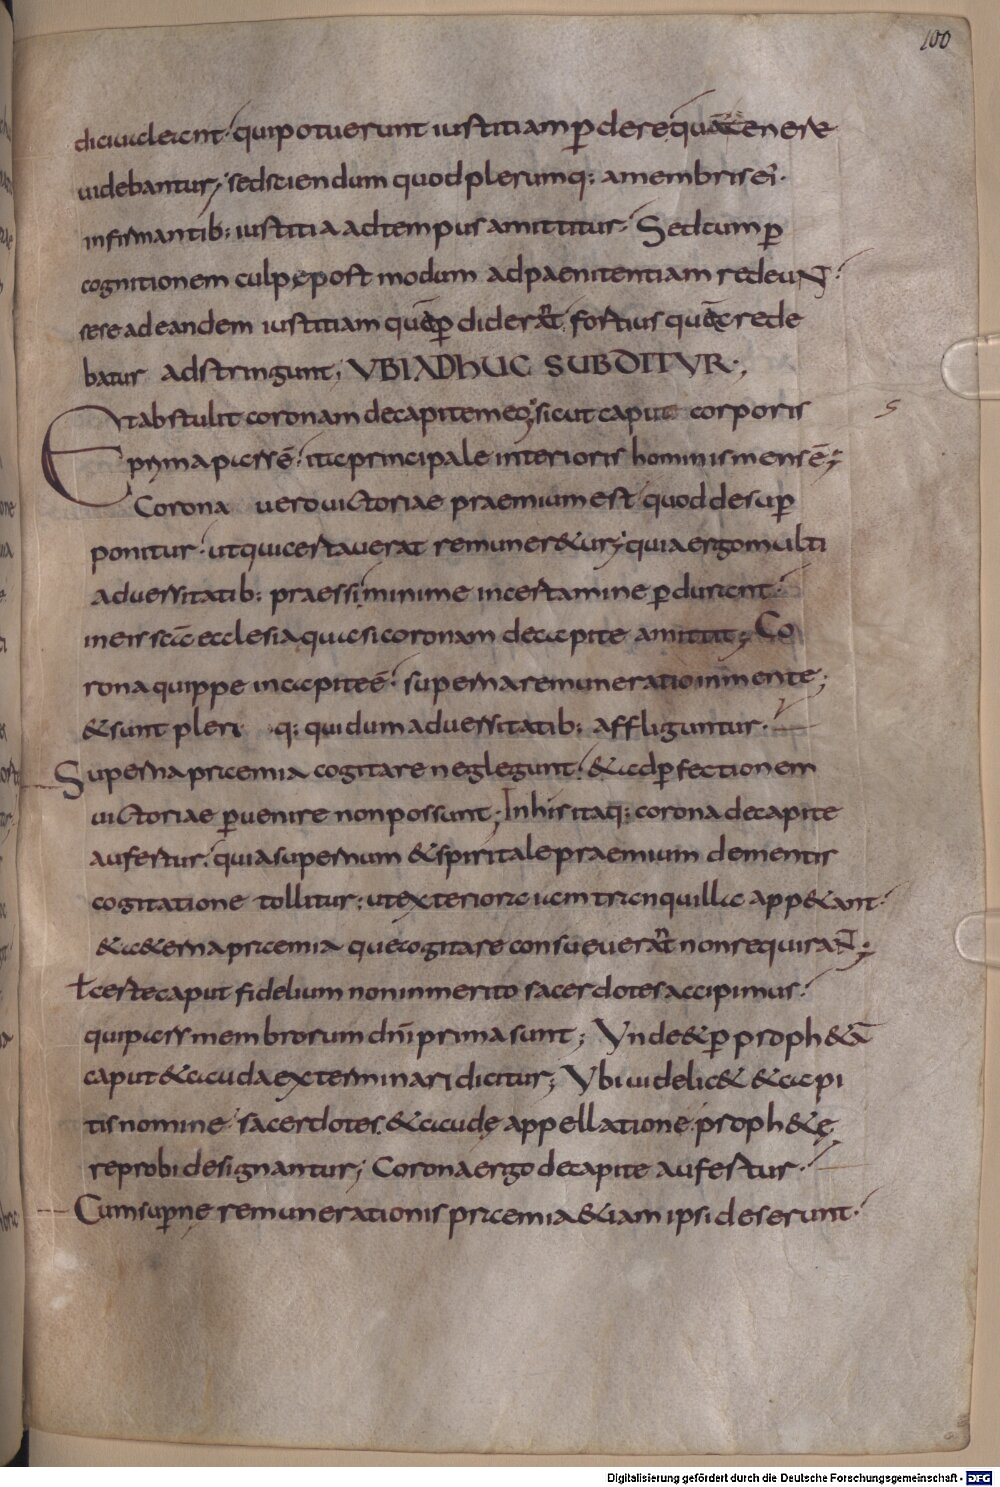 100
diciuideant· qui potuerunt iustitiam ꝑdere quā tenere
uidebantur; sed sciendum quod plerumq: a membris ei᷒·
infirmantib: iustitia ad tempus amittitur· Sed cum ꝑ
cognitionem culpę post modum ad paenitentiam redeuNT·
sese ad eandem iustitiam quē ꝑdiderāt fortius quę crede
batur adstringunt; VBI ADhUC SUBDITVR·,
Et abstulit coronam de capite meo; sicut caput corporis
prima pars ē· ita principale interioris hominis mens ē;
Corona uero uictoriae praemium est quod desuꝑ
ponitur· ut qui certauerat remuner&ur; quia ergo multi
aduersitatib: praessi minime in certamine ꝑdurant·
in eis sc̄a ecclesia quasi coronam de capite amittit; Co
rona quippe in capite ē· superna remuneratio in mente;
& sunt pleri q: qui dum aduersitatib: affliguntur·
Superna praemia cogitare neglegunt· & ad ꝑfectionem
uictoriae ꝑuenire non possunt; In his itaq: corona de capite
aufertur· quia supernum & spiritale praemium de mentis
cogitatione tollitur; ut exteriora iam tranquilla app&ant·
& a&erna praemia que cogitare consueuerāt non requiraNT;
ł certe caput fidelium non inmerito sacerdotes accipimus·
qui pars membrorum dn̄i prima sunt; Vnde & ꝑ proph&ā
caput & cauda exterminari dicitur; Vbi uidelic& & capi
tis nomine sacerdotes & caudę appellatione proph&ę
reprobi designantur; Corona ergo de capite aufertur·
Cum supernę remunerationis praemia &iam ipsi deserunt·
Digitalisierung gefördert durch die Deutsche Forschungsgemeinschaft - DFG